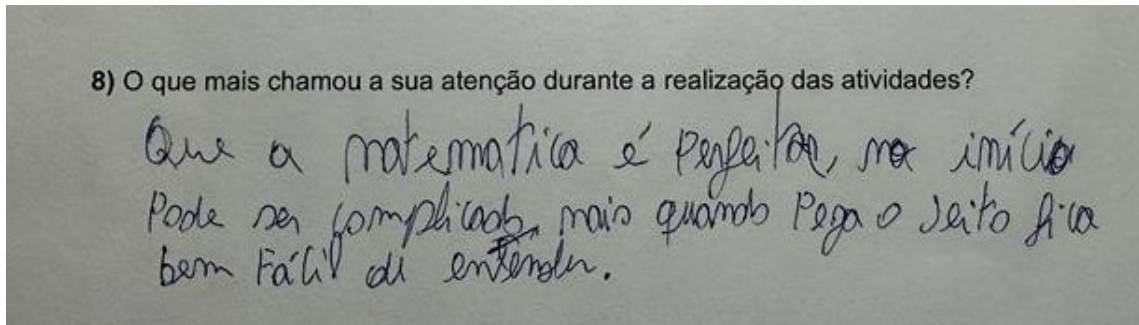 8) O que mais chamou a sua atenção durante a realização das atividades?
Que a matematica é perfeita, no início
Pode ser complicado, mais quando Pega o Jeito fica
bem Fácil de entender.